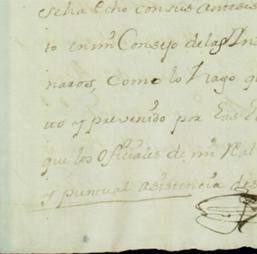 se ha Echo con sus anteces
to en mi Consejo de las In
naros, como lo hago q
uo y prevenido por las L
que los Oficiales de mi Real
y puntual asistencia des